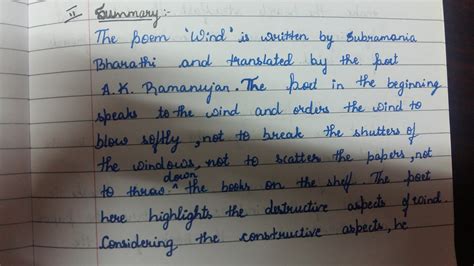 II Summary:-
The poem 'Wind' is written by Subramania
Bharathi and translated by the poet
A.K. Ramanujan. The poet in the beginning
speaks to the wind and orders the wind to
blow softly, not to break the shutters of
the windows, not to scatter the papers, not
to throw ^down the books on the shelf. The poet
here highlights the destructive aspects of wind.
Considering the constructive aspects, he